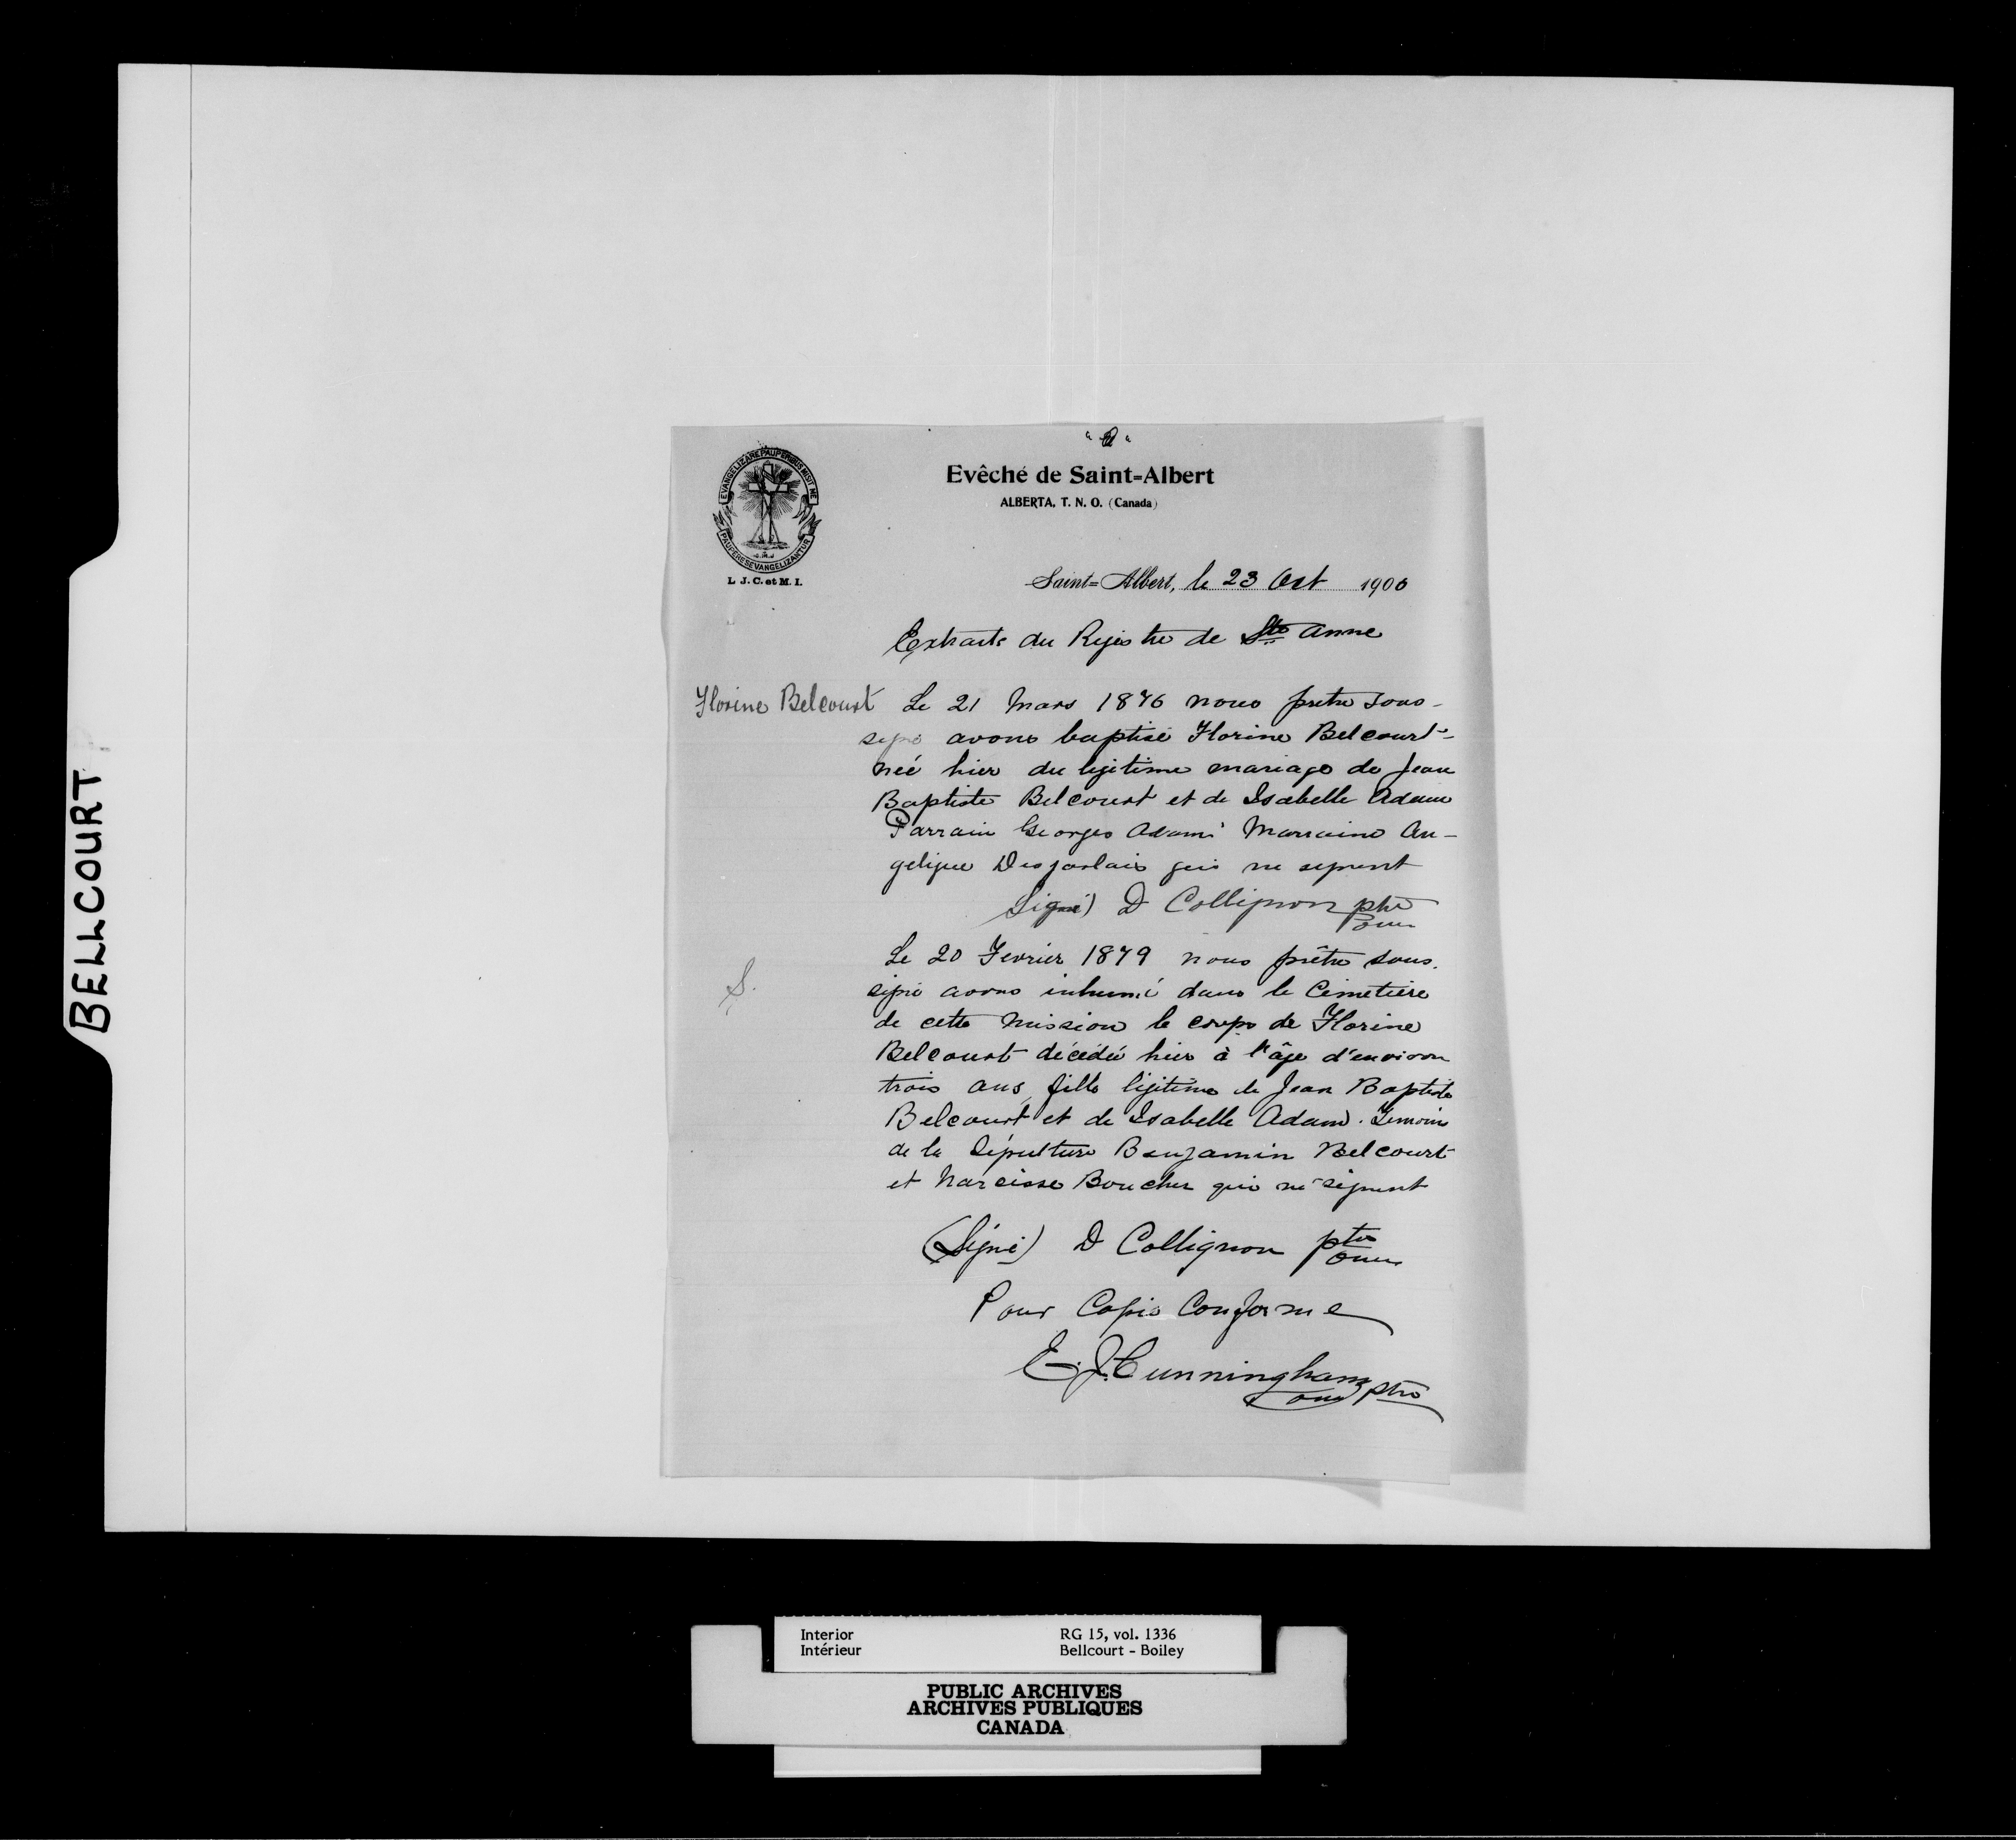 BELLCOURT
EVANGELIZARE PAUPERIBUS MISIT ME
PAUPERES EVANGELIZANTUR
L. J. C. et M. I.
Evêché de Saint=Albert
ALBERTA, T. N. O. (Canada)
Saint=Albert, le 23 Oct 1900
Extraits du Registre de Ste Anne
Florine Belcourt Le 21 Mars 1876 nous pretre sous-
signé avons baptisé Florine Belcourt
neé hier du legitime mariage de Jean
Baptiste Belcourt et de Isabelle Adam
Parrain Georges Adam Marraine An-
gelique Desjarlais qui ne signent
Signé) D Collignon ptre
omi
Le 20 Fevrier 1879 nous prêtre sous.
S.
signé avons inhumé dans le Cimetiere
de cette Mission le corps de Florine
Belcourt décédée hier à l'âge d'environ
trois ans, fille légitime de Jean Baptiste
Belcourt et de Isabelle Adam. Temoins
de la Sépulture Benjamin Belcourt
et Narcisse Boucher qui ne signent
(Signé) D Collignon ptre
omi
Pour Copie Conforme
E. J. Cunningham ptre
omi
Interior RG 15, vol. 1336
Intérieur Bellcourt - Boiley
PUBLIC ARCHIVES
ARCHIVES PUBLIQUES
CANADA